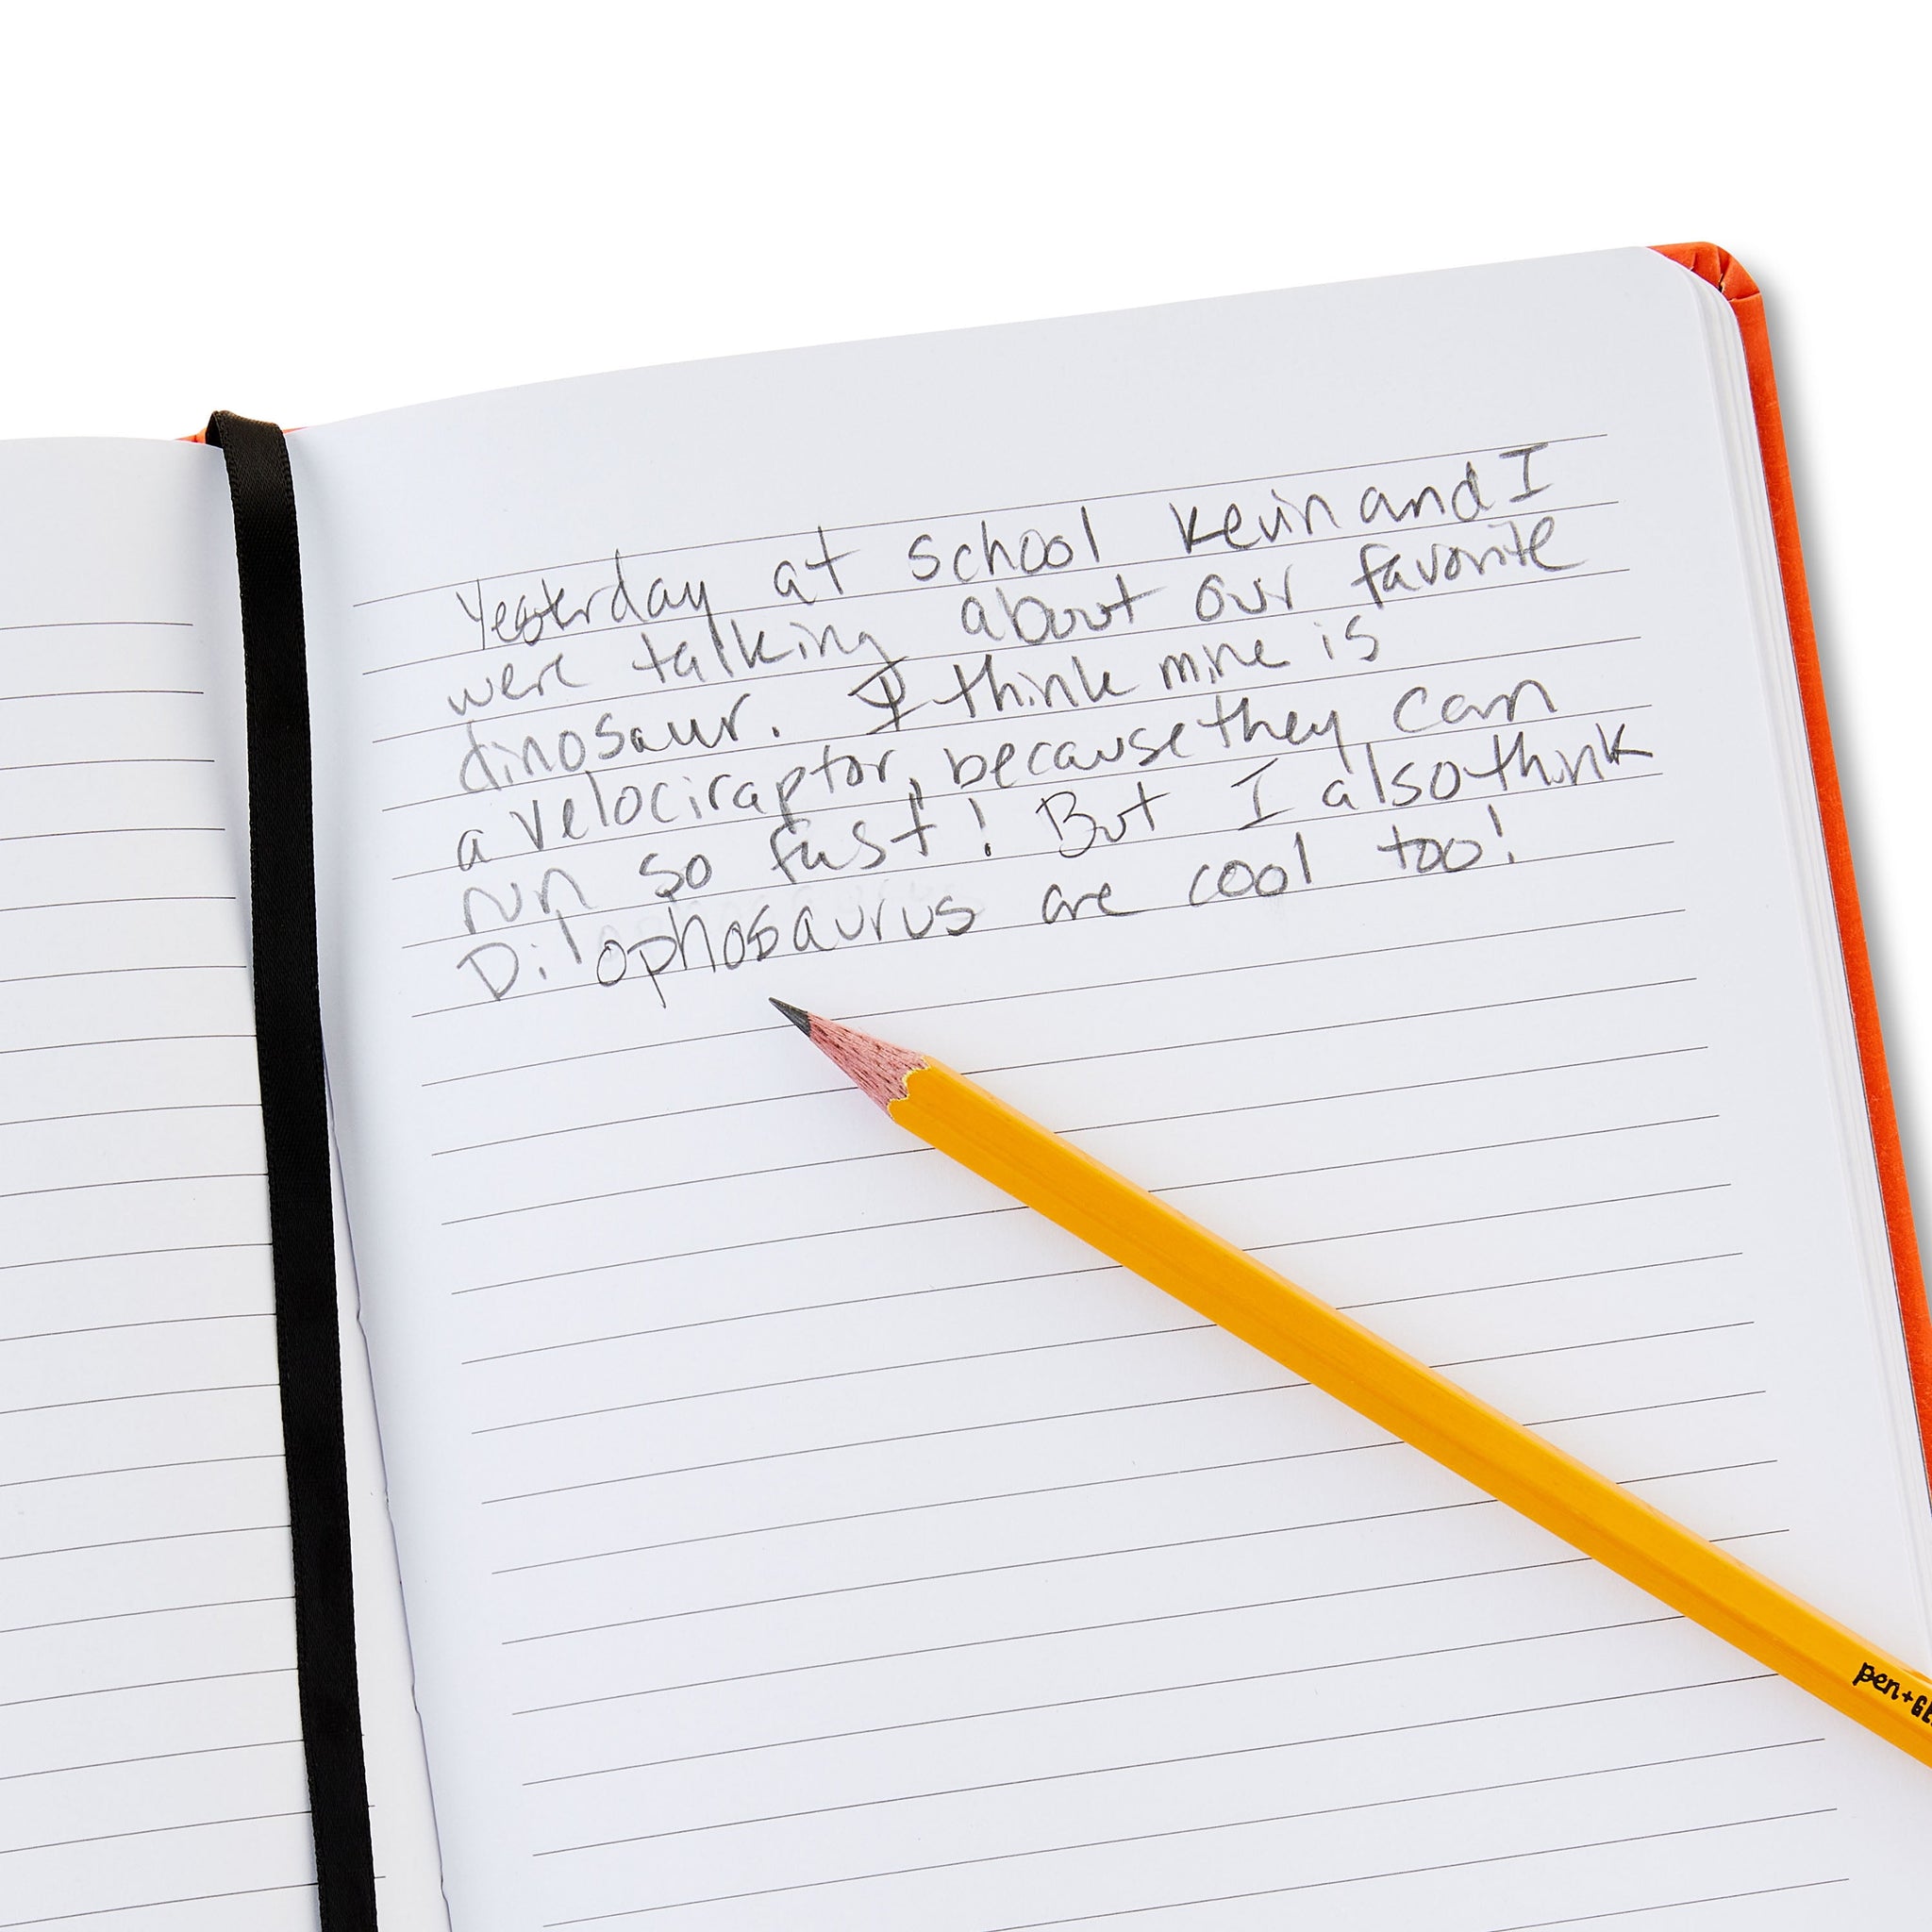 Yesterday at school Kevin and I
were talking about our favorite
dinosaur. I think mine is
a velociraptor, because they can
run so fast! But I also think
Dilophosaurus are cool too!
pen+GE